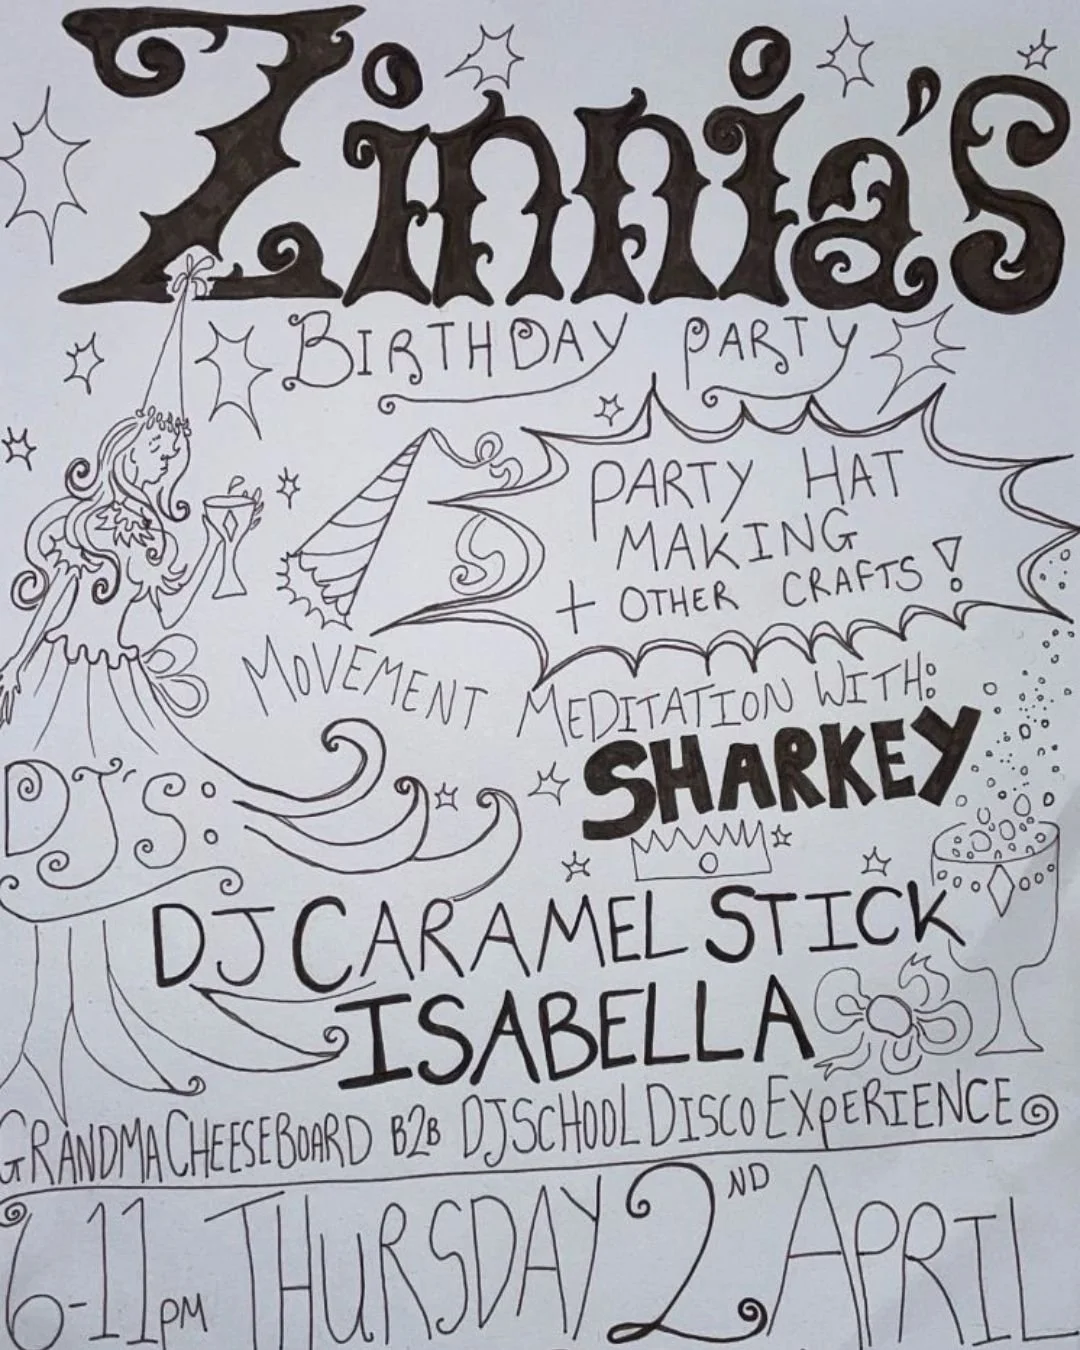 Zinnia's
BIRTHDAY PARTY
PARTY HAT
MAKING
+ OTHER CRAFTS!
MOVEMENT MEDITATION WITH:
SHARKEY
DJ'S:
DJ CARAMEL STICK
ISABELLA
GRANDMA CHEESEBOARD B2B DJ SCHOOL DISCO EXPERIENCE
6-11PM THURSDAY 2ND APRIL